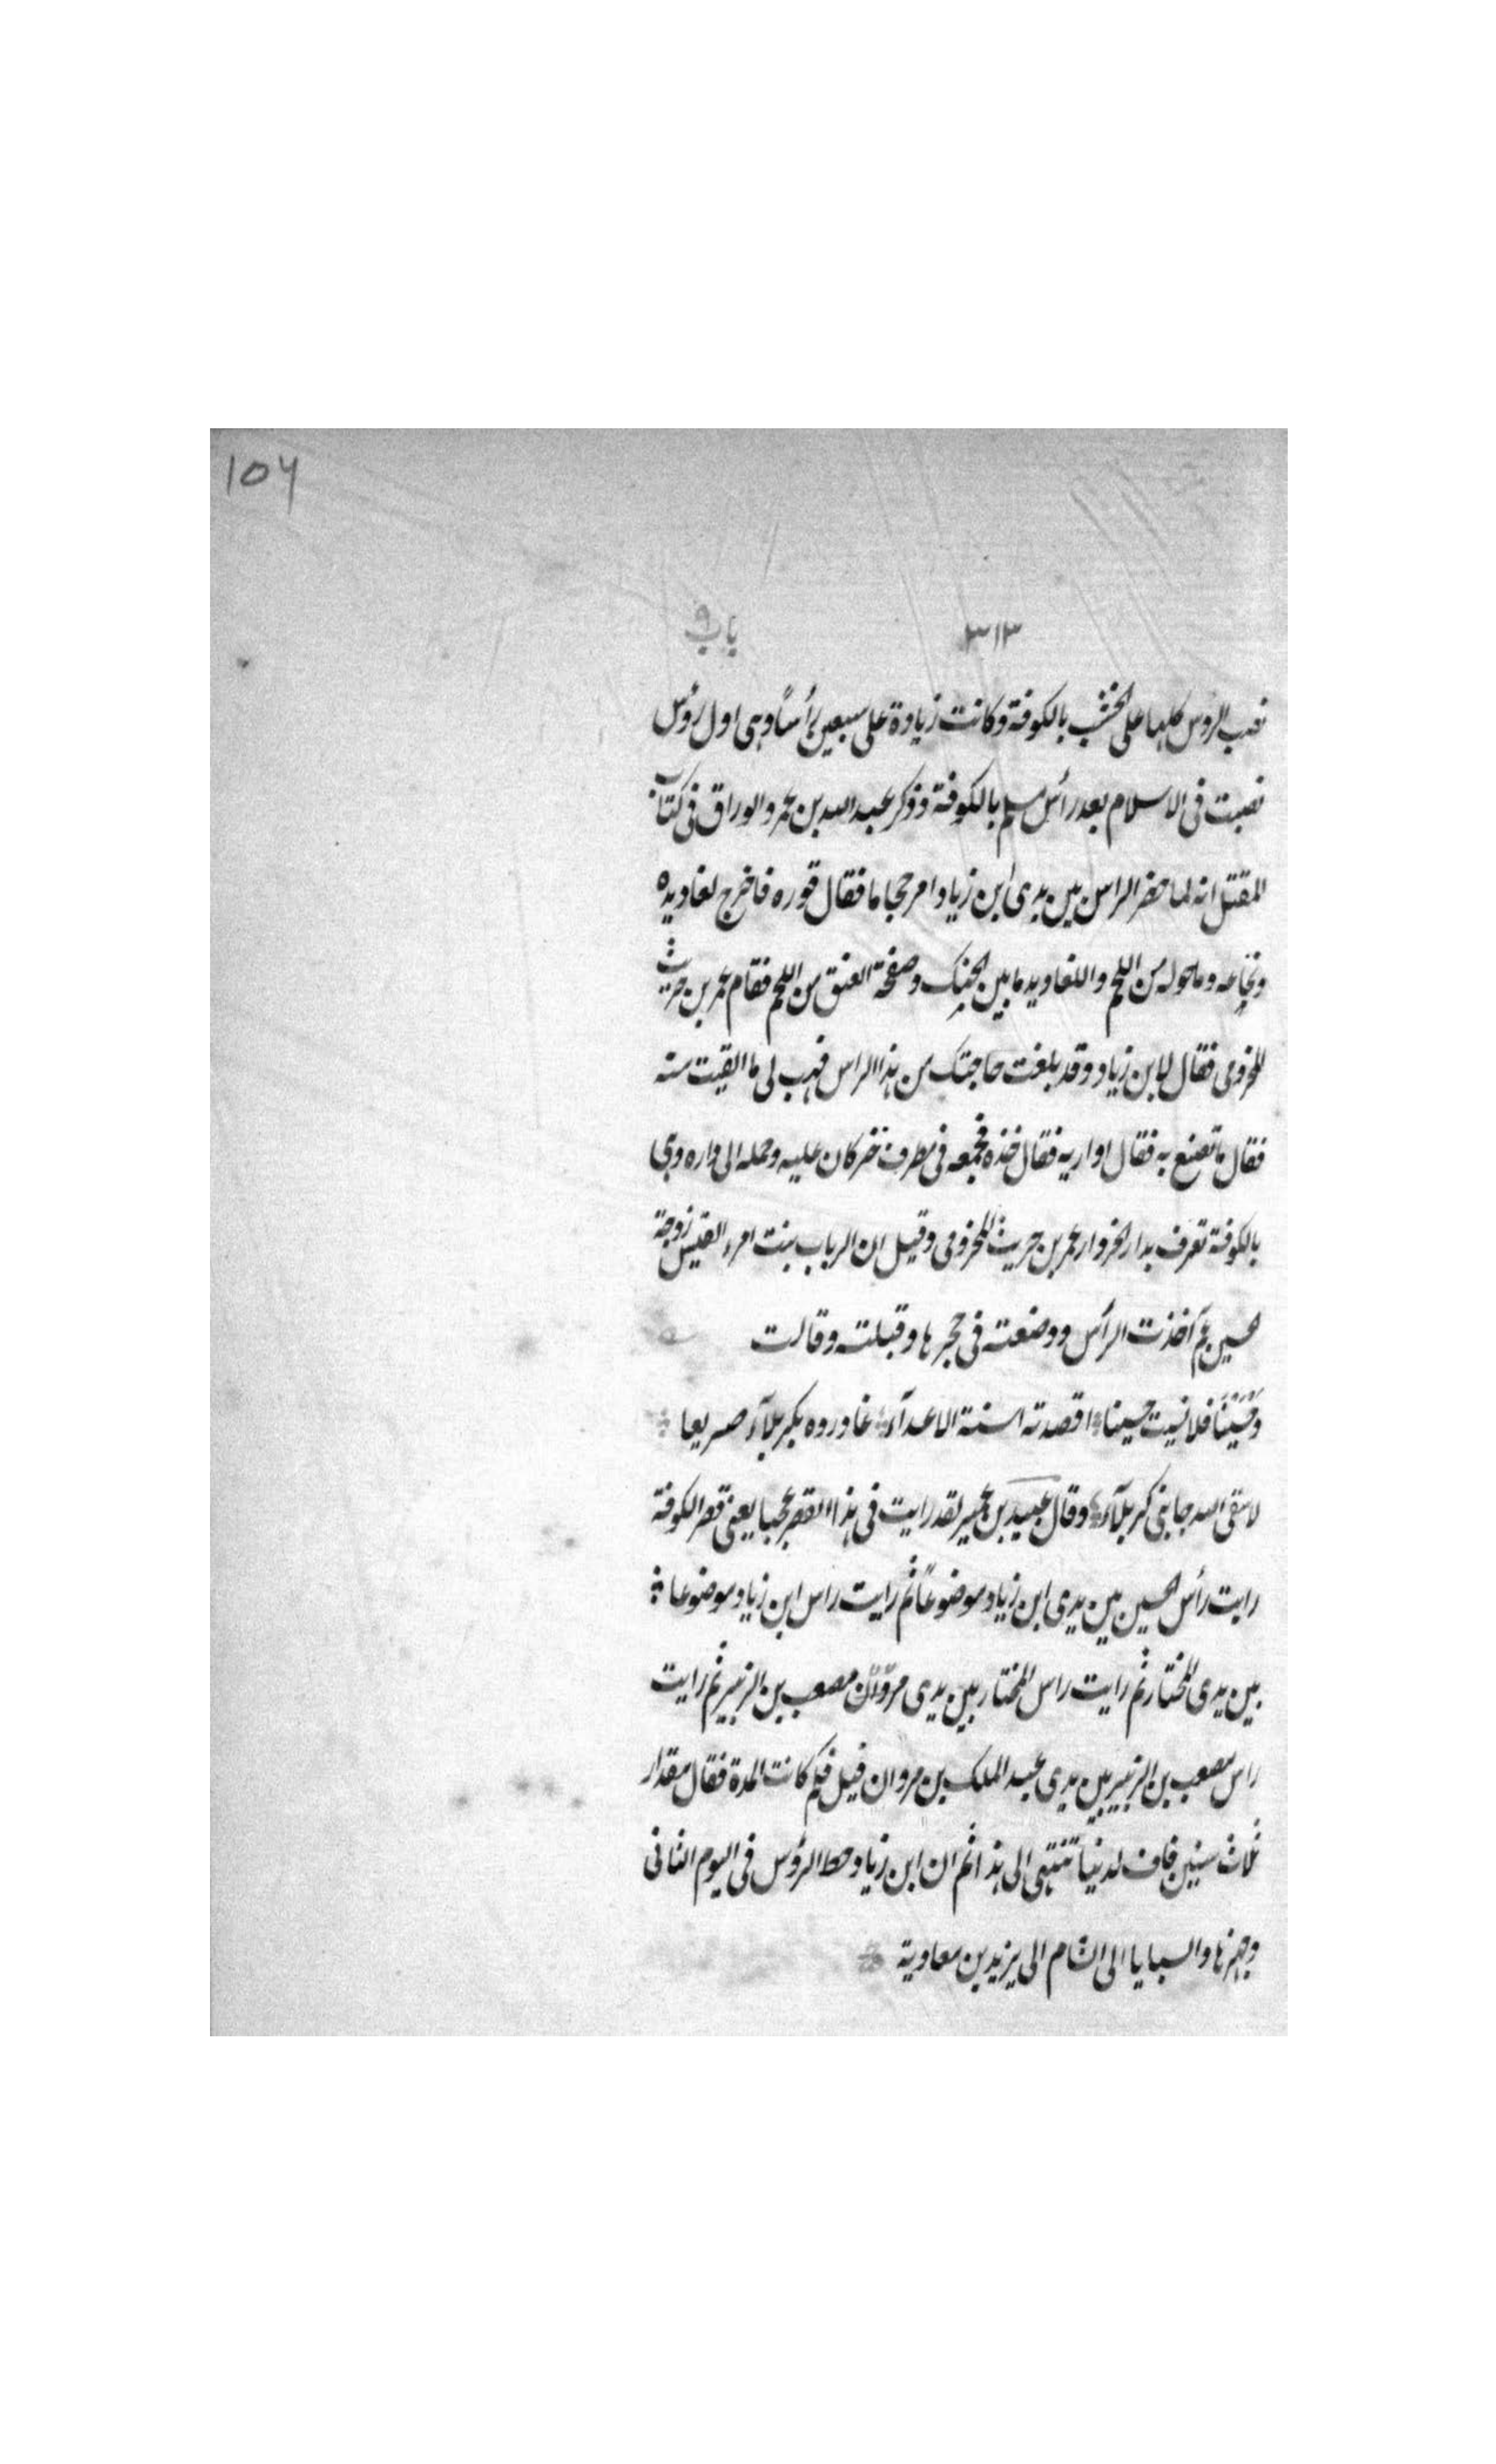 104
٣١٣ باب ٩
نصب الروس كلها على الخشب بالكوفة وكانت زيادة على سبعين رأساً وهى اول رؤس
نصبت فى الاسلام بعد رأس مسلم بالكوفة وذكر عبد الله بن عمرو الوراق فى كتاب
المقتل انه لما حضر الراس بين يدى ابن زياد امر حجاما فقال قوره فاخرج لغاديده
ونخاعه وماحوله من اللحم واللغاديد ما بين الحنك وصفحة العنق من اللحم فقام عمر بن حريث
المخزومى فقال لابن زياد وقد بلغت حاجتك من هذا الراس فهب لى ما القيت منه
فقال ماتصنع به فقال اواريه فقال خذه فجمعه فى مطرف خز كان عليه وحمله الى داره وهى
بالكوفة تعرف بدار الخز دار عمر بن حريث المخزومى وقيل ان الرباب بنت امرء القيس زوجة
حسين عم اخذت الرأس ووضعته فى حجرها وقبلته وقالت
وَحُسَيْنًا فلا نسيت حسينا اقصدته اسنة الاعدآء غادروه بكربلآء صريعا
لاسقى الله جانبى كربلآء وقال عبيد بن عمير لقد رايت فى هذا القصر عجبا يعنى قصر الكوفة
رايت رأس الحسين بين يدى ابن زياد موضوعاً ثم رايت راس ابن زياد موضوعا
بين يدى المختار ثم رايت راس المختار بين يدى مصعب بن الزبير ثم رايت
راس مصعب بن الزبير بين يدى عبد الملك بن مروان قيل فكم كانت المدة فقال مقدار
ثلاث سنين فاف لدنيا تنتهى الى هذا ثم ان ابن زياد حط الرؤس فى اليوم الثانى
وجهزها والسبايا الى الشام الى يزيد بن معاوية